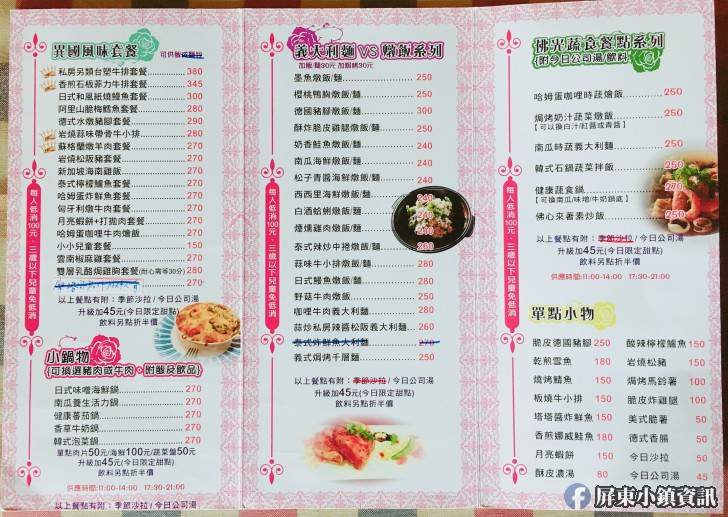 異國風味套餐 可供飯或麵包
私房另類台塑牛排套餐 380
香煎石板菲力牛排套餐 345
日式和風紙燒鯛魚套餐 300
阿里山脆梅鱈魚套餐 280
德式水燉豬腳套餐 290
岩燒蒜味帶骨牛小排 290
蘇格蘭燉羊肉套餐 270
岩燒松阪豬套餐 270
新加坡海南雞套餐 270
泰式檸檬鱸魚套餐 270
哈姆蛋炸魚套餐 270
匈牙利燉牛肉套餐 270
月亮蝦餅+打拋肉套餐 270
哈姆蛋咖哩牛肉燴飯 270
小小兒童套餐 150
雲南椒麻雞套餐 270
雙層乳酪焗雞胸套餐(耐心需等30分) 280
270
以上餐點有附：季節沙拉 / 今日公司湯
升級加45元(今日限定甜點)
飲料另點折半價
每人低消100元、三歲以下兒童免低消
小鍋物
{可挑選豬肉或牛肉。附飯及飲品}
日式味噌海鮮鍋 270
南瓜養生活力鍋 270
健康蕃茄鍋 270
香草牛奶鍋 270
韓式泡菜鍋 270
單點肉片50元/海鮮100元/蔬菜盤50元
升級加45元(今日限定甜點)
飲料另點折半價
供應時間:11:00-14:00 17:30-21:00
以上餐點有附：季節沙拉 / 今日公司湯
義大利麵 VS 燉飯系列
加飯/麵30元 加焗烤30元
墨魚燉飯/麵 250
櫻桃鴨胸燉飯/麵 250
德國豬腳燉飯/麵 300
酥炸脆皮雞腿燉飯/麵 250
奶香鮭魚燉飯/麵 240
南瓜海鮮燉飯/麵 240
松子青醬海鮮燉飯/麵 240
西西里海鮮燉飯/麵 240
白酒蛤蜊燉飯/麵 240
煙燻雞肉燉飯/麵 240
泰式辣炒中捲燉飯/麵 260
蒜味牛小排燉飯/麵 280
日式鰻魚燉飯/麵 280
野菇牛肉燉飯 250
咖哩牛肉義大利麵 250
蒜炒私房辣醬松阪義大利麵 260
泰式炸鮮魚大利麵 270
義式焗烤千層麵 250
以上餐點有附：季節沙拉 / 今日公司湯
升級加45元(今日限定甜點)
飲料另點折半價
每人低消100元、三歲以下兒童免低消
佛光蔬食餐點系列
{附今日公司湯/飲料}
哈姆蛋咖哩時蔬燴飯 250
焗烤奶汁蔬菜燉飯 250
【可以換白汁/紅醬或青醬】
南瓜時蔬義大利麵 250
韓式石鍋蔬菜拌飯 250
健康蔬食鍋 250
【可換南瓜/味噌/牛奶鍋底】
佛心來著素炒飯 250
以上餐點有附：季節沙拉 / 今日公司湯
升級加45元(今日限定甜點)
飲料另點折半價
供應時間:11:00-14:00 17:30-21:00
每人低消100元、三歲以下兒童免低消
單點小物
脆皮德國豬腳 250 酸辣檸檬鱸魚 150
乾煎雪魚 180 岩燒松豬 150
燒烤鯖魚 150 焗烤馬鈴薯 100
板燒牛小排 150 脆皮炸雞腿 100
塔塔醬炸鮮魚 150 美式脆薯 50
香煎娜威鮭魚 180 德式香腸 50
月亮蝦餅 150 今日沙拉 50
酥皮濃湯 80 今日公司湯 45
屏東小鎮資訊